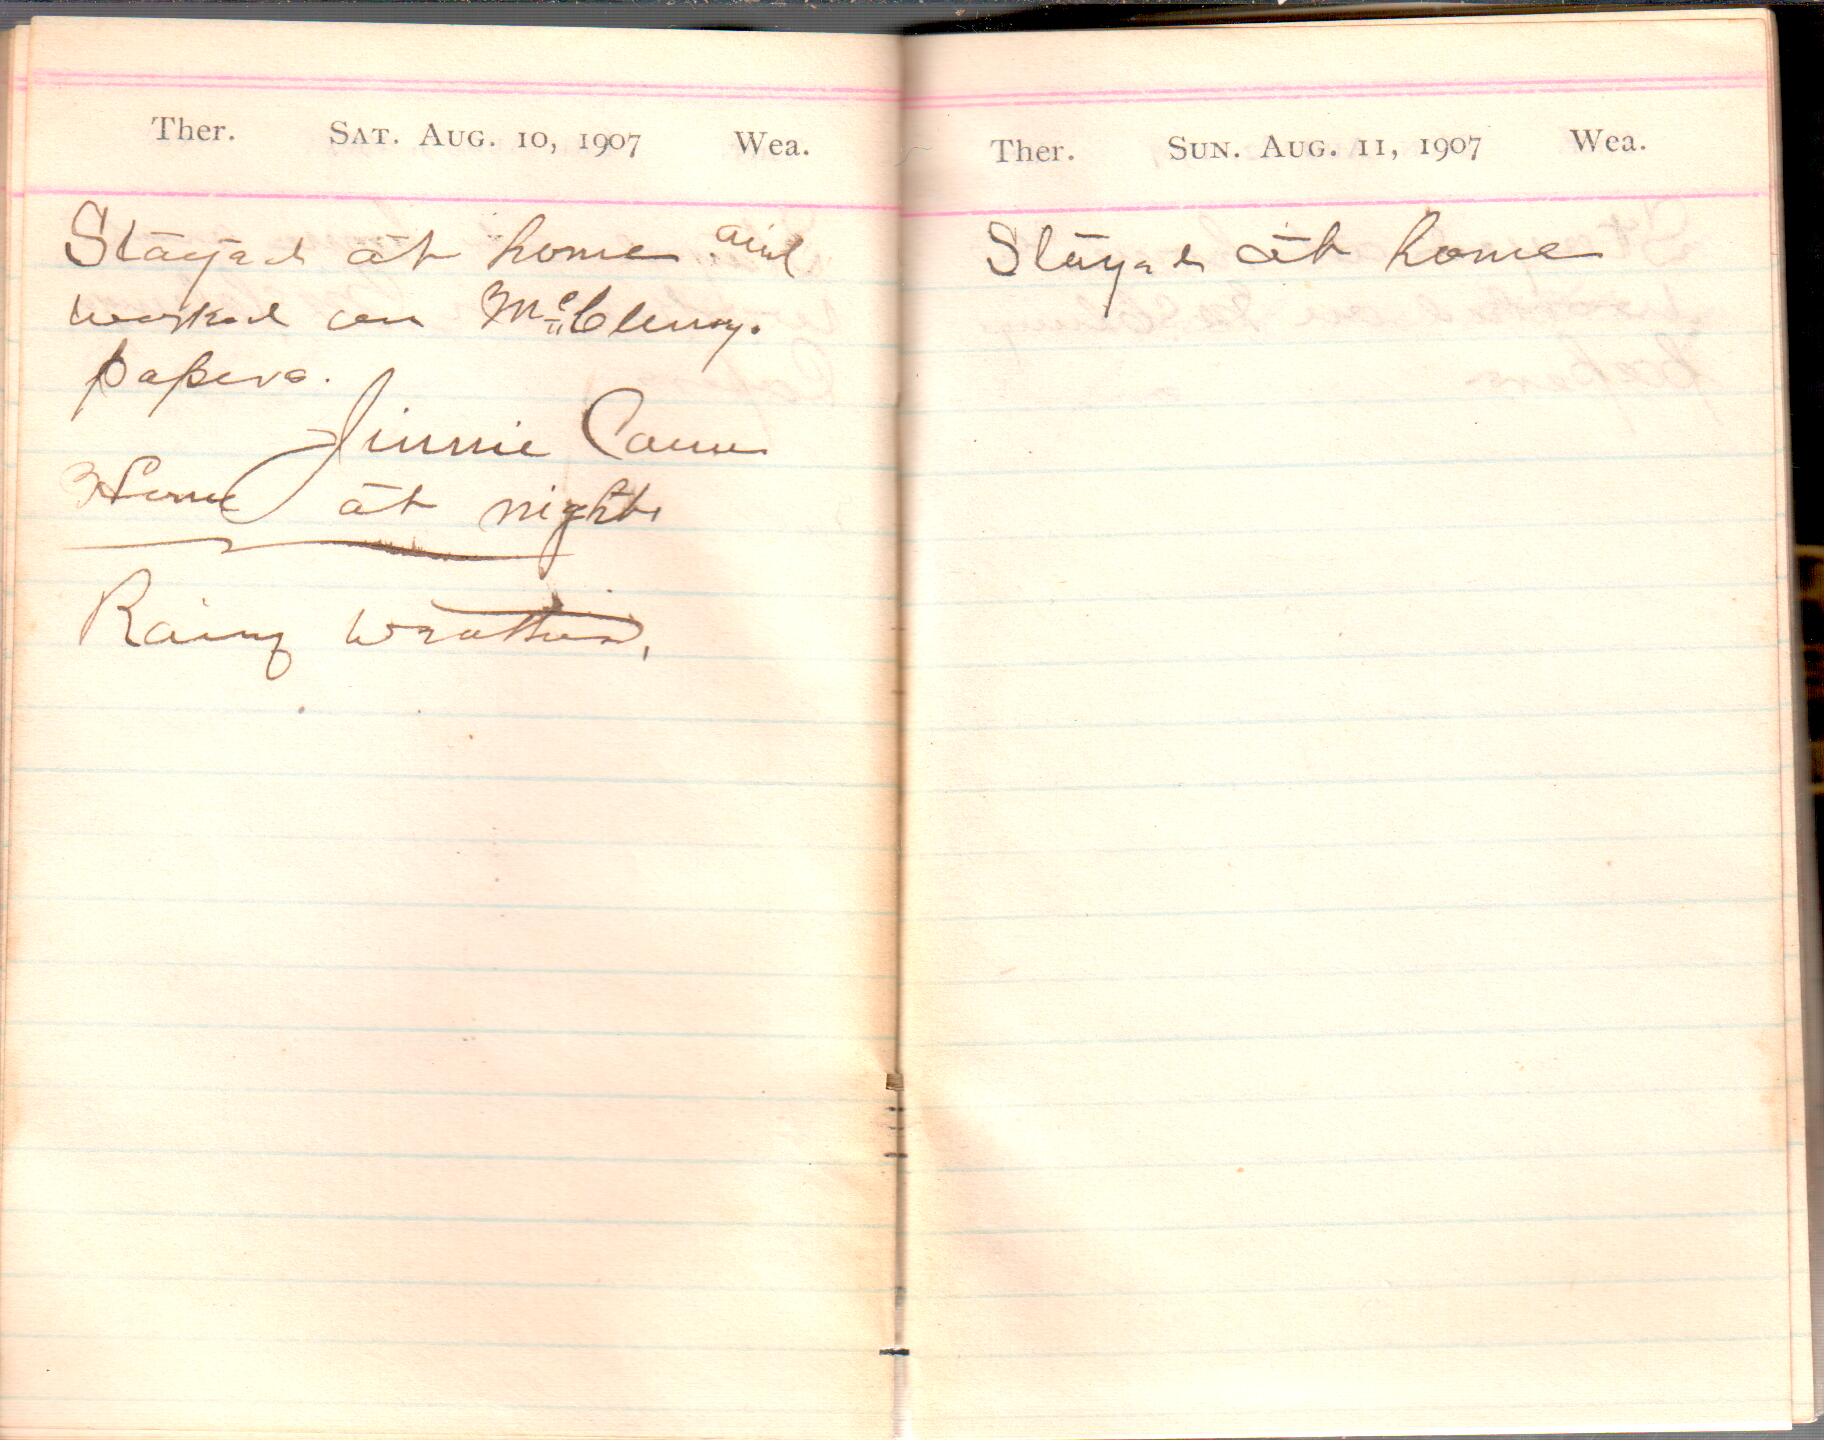 Ther. SAT. AUG. 10, 1907 Wea.
Stayed at home and
worked on McClenny.
papers.
Jinnie Came
Home at night.
Rainy Weather,
Ther. SUN. AUG. 11, 1907 Wea.
Stayed at home